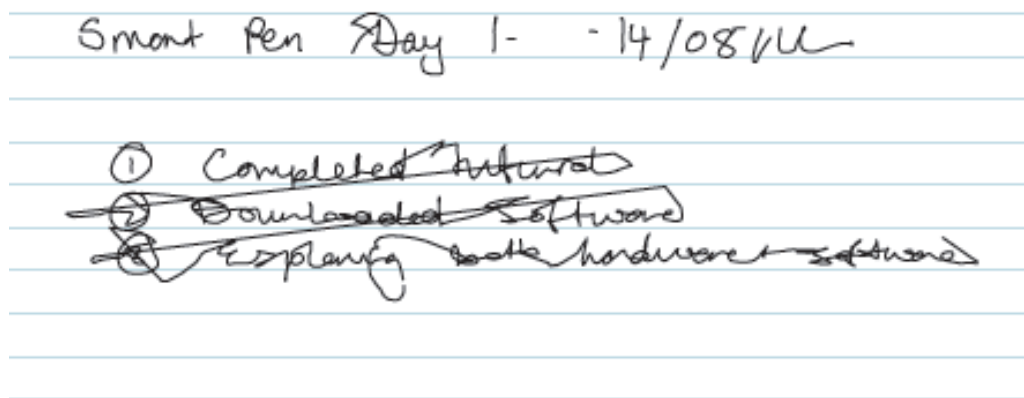 Smart Pen Day 1- - 14/08/
① Completed tutorial
② Downloaded software
③ Exploring both hardware + software